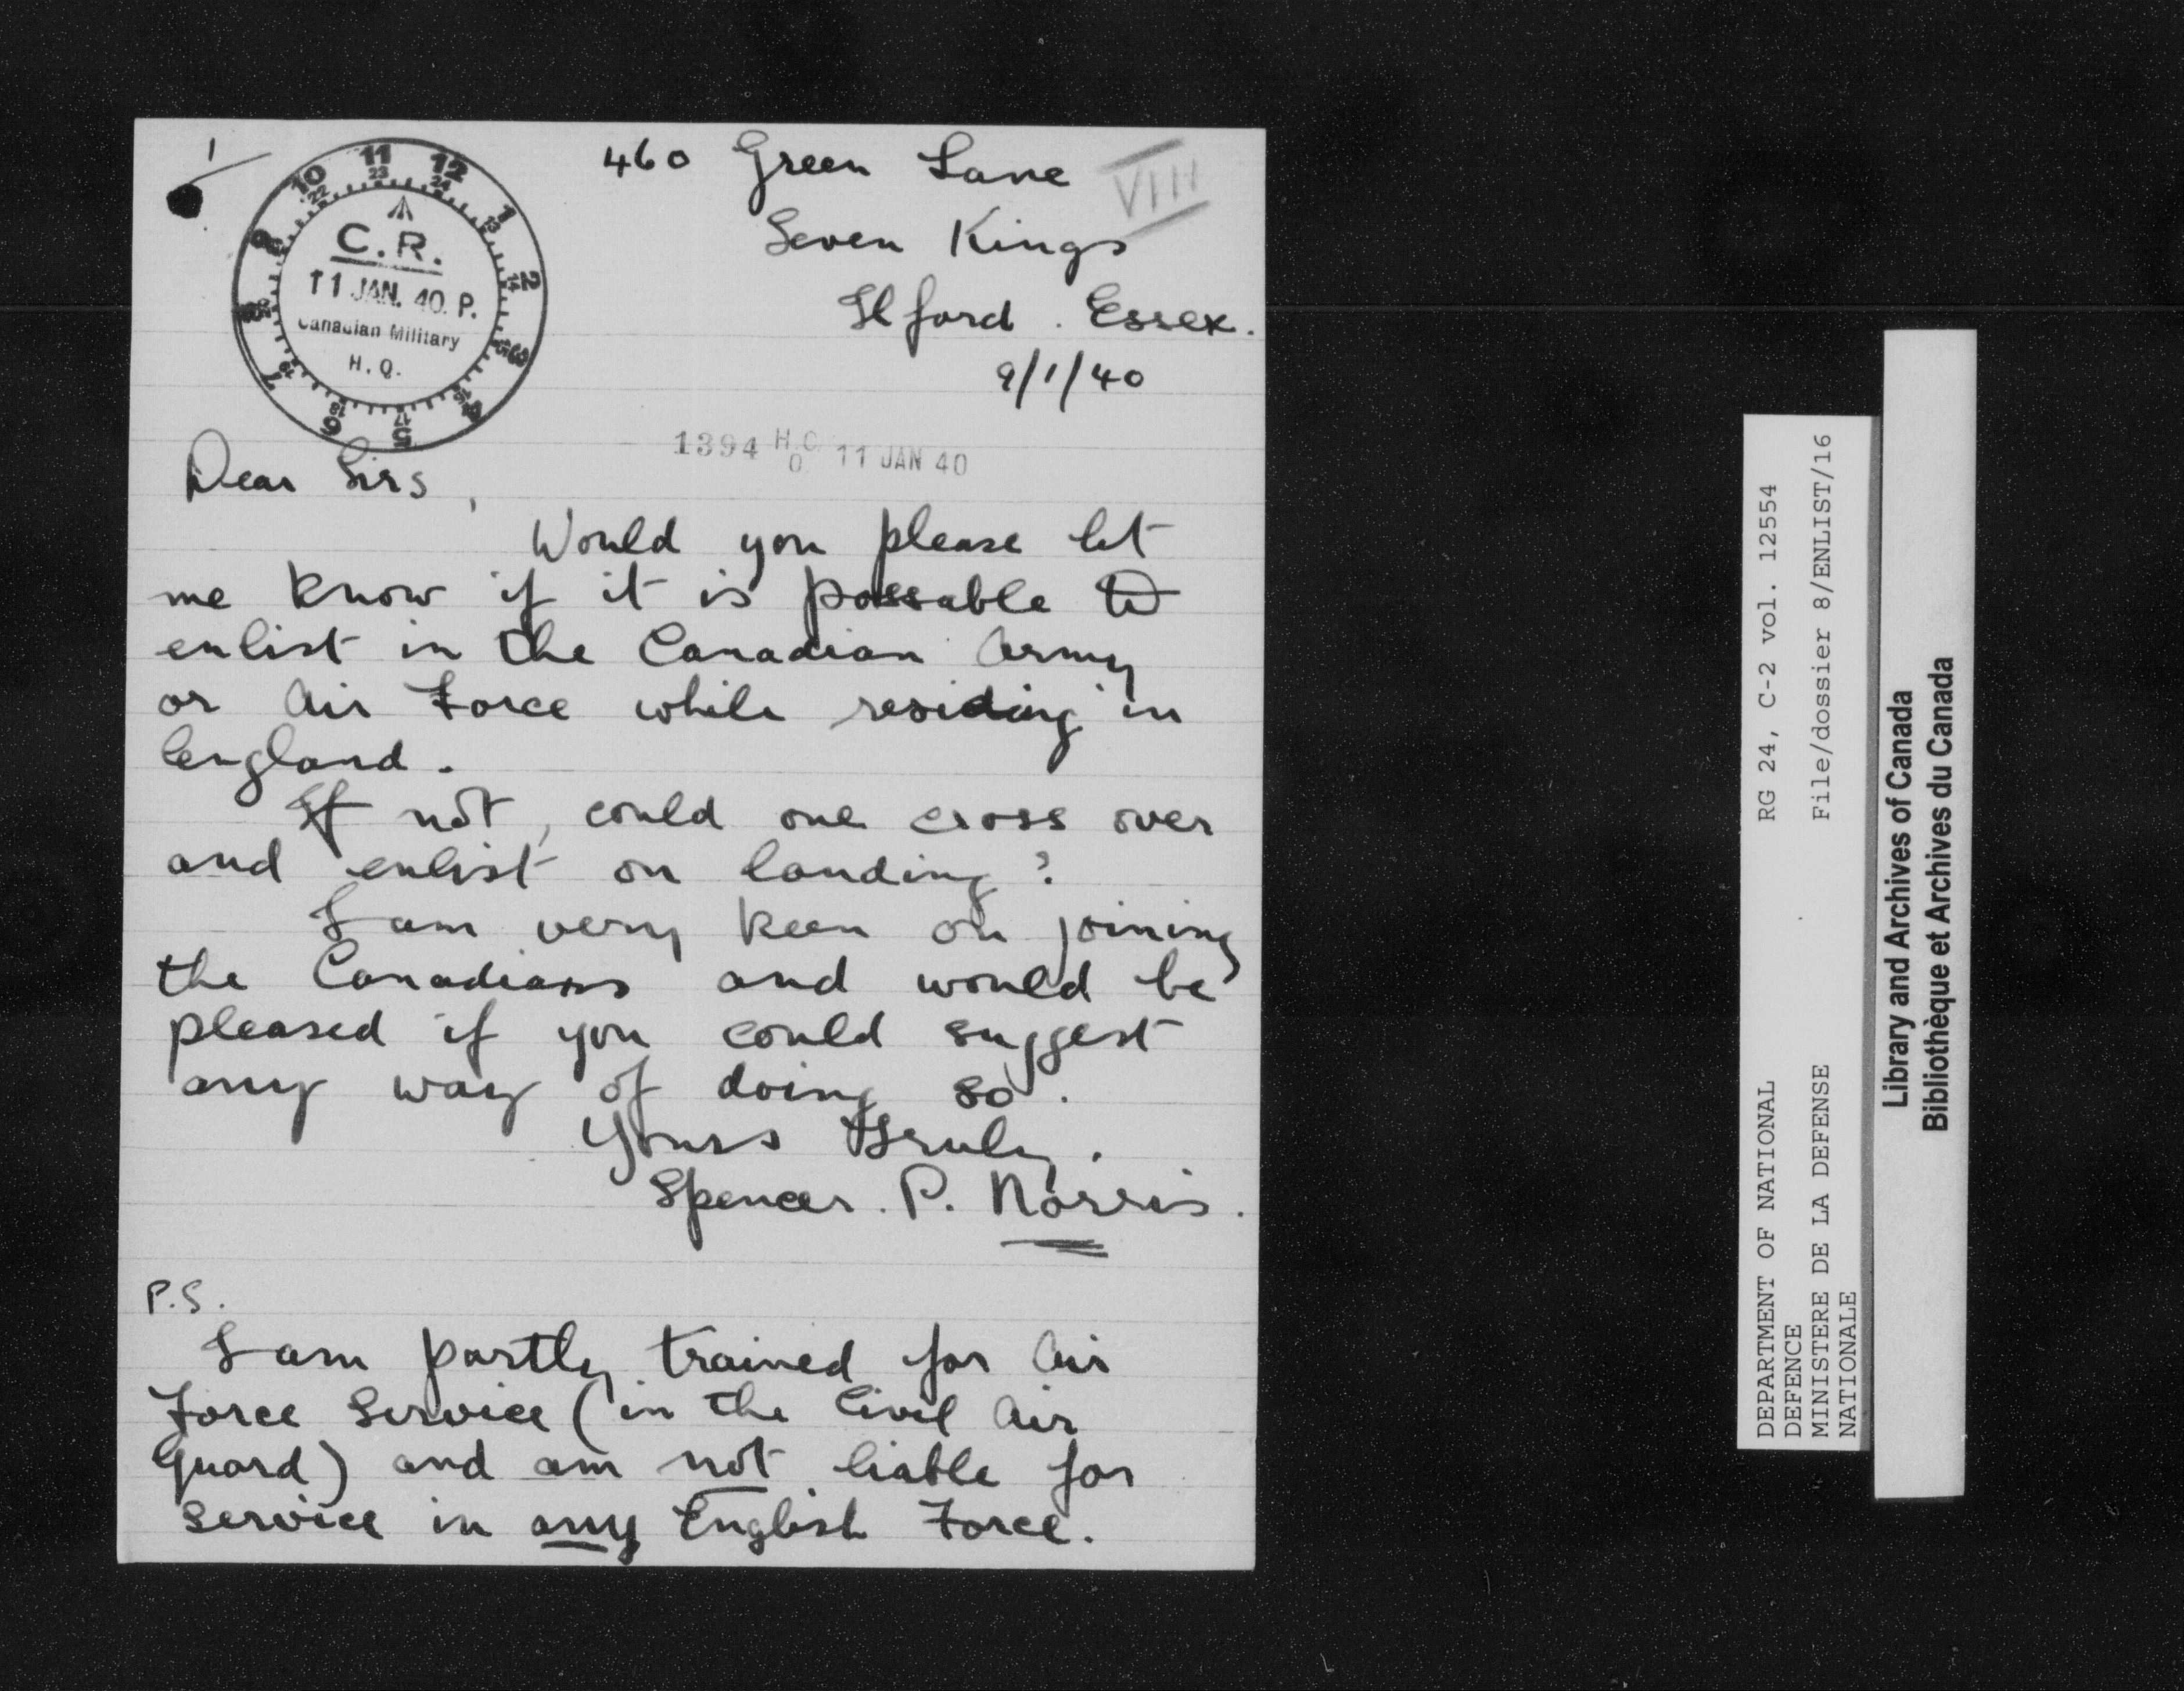 460 Green Lane
VIII
Seven Kings
Ilford. Essex.
9/1/40
11 12 1 2 3 4 5 6 7 8 9 10
23 24 13 14 15 16 17 18 19 20 21 22
C.R.
11 JAN. 40. P.
Canadian Military
H.Q.
1394 H.Q. 11 JAN 40
Dear Sirs,
Would you please let
me know if it is possable to
enlist in the Canadian Army
or Air Force while residing in
England.
If not, could one cross over
and enlist on landing?
I am very keen on joining
the Canadians and would be
pleased if you could suggest
any way of doing so.
Yours Truly.
Spencer. P. Norris.
P.S.
I am partly trained for Air
Force Service (in the Civil Air
Guard) and am not liable for
service in any English Force.
DEPARTMENT OF NATIONAL RG 24, C-2 vol. 12554
DEFENCE
MINISTERE DE LA DEFENSE File/dossier 8/ENLIST/16
NATIONALE
Library and Archives of Canada
Bibliothèque et Archives du Canada